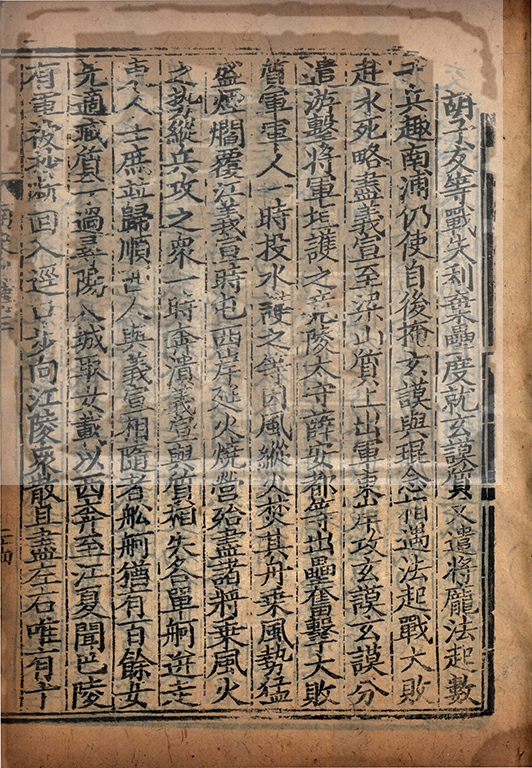 胡子友等戰失利棄壘度就玄謨質又遣將龐法起數
千兵趣南浦仍使自後掩玄謨與琨念相遇法起戰大敗
赴水死略盡義宣至梁山質上出軍東岸攻玄謨玄謨分
遣游擊將軍垣護之竟陵太守薛安都等出壘奮擊大敗
質軍軍人一時投水護之等因風縱火焚其舟乗風勢猛
盛煙爓覆江義宣時屯西岸延火燒營殆盡諸將乗風火
之勢縱兵攻之衆一時奔潰義宣與質相失各單舸迸走
東人士庶並歸順西人與義宣相隨者舩舸猶有百餘女
先適臧質子過尋陽入城取女載以西奔至江夏聞巴陵
有軍被抄斷回入逕口步向江陵衆散且盡左右唯有十